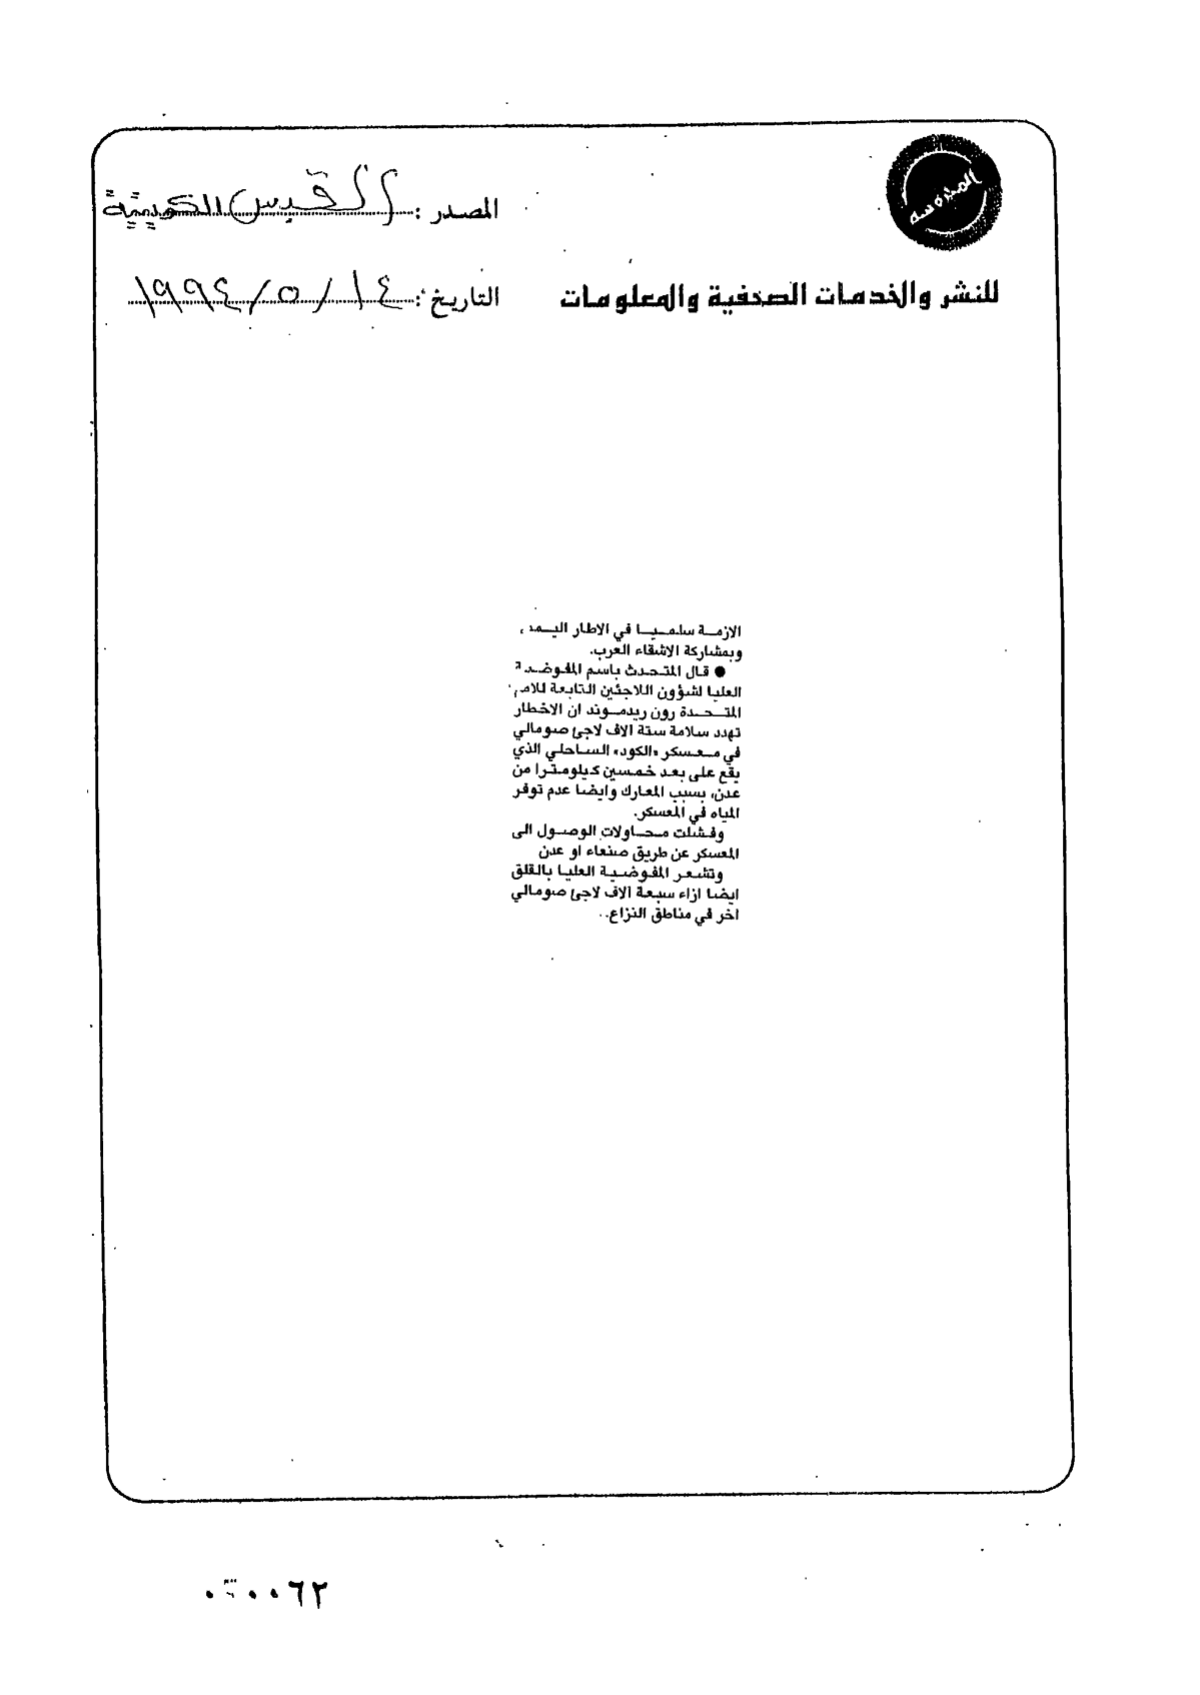 المصدر : القبس الكويتية
للنشر والخدمات الصحفية والمعلومات
التاريخ : ١٤ / ٥ / ١٩٩٤
الازمة سلميا في الاطار
وبمشاركة الاشقاء العرب.
● قال المتحدث باسم المفوضية
العليا لشؤون اللاجئين التابعة للامم
المتحدة رون ريدموند ان الاخطار
تهدد سلامة ستة الاف لاجئ صومالي
في معسكر «الكود» الساحلي الذي
يقع على بعد خمسين كيلومترا من
عدن، بسبب المعارك وايضا عدم توفر
المياه في المعسكر.
وفشلت محاولات الوصول الى
المعسكر عن طريق صنعاء او عدن
وتشعر المفوضية العليا بالقلق
ايضا ازاء سبعة الاف لاجئ صومالي
اخر في مناطق النزاع..